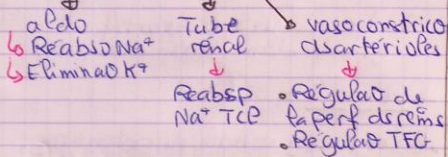 aldo
↳ Réabso Na⁺
↳ Elimina⊖ K⁺
Tube
rénal
↓
Réabsp
Na⁺ TCP
vasoconstrico
dsartérioles
↓
• Régula⊖ de
la perf ds reins
• Régula⊖ TFG